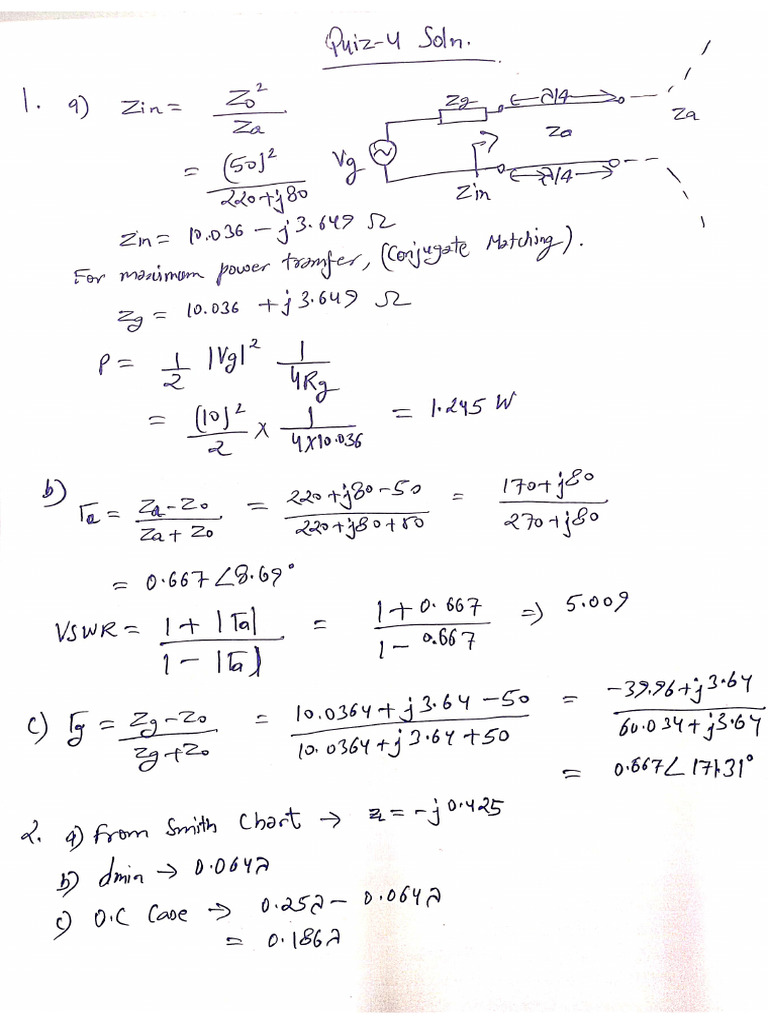 Quiz-4 Soln.
1. a) Zin = Z0² / Za
= (50)² / 220+j80
Zin = 10.036 - j3.649 Ω
Vg
Zg
λ/4
Z0
Za
Zin
λ/4
For maximum power transfer, (Conjugate Matching).
Zg = 10.036 + j3.649 Ω
P = 1/2 |Vg|² 1/4Rg
= (10)²/2 × 1/4×10.036 = 1.245 W
b) Γa = Za-Z0 / Za+Z0 = 220+j80-50 / 220+j80+50 = 170+j80 / 270+j80
= 0.667∠8.69°
VSWR = 1+|Γa| / 1-|Γa| = 1+0.667 / 1-0.667 ⇒ 5.009
c) Γg = Zg-Z0 / Zg+Z0 = 10.0364+j3.64-50 / 10.0364+j3.64+50 = -39.96+j3.64 / 60.034+j3.64
= 0.667∠171.31°
2. a) From Smith Chart → zL = -j0.425
b) dmin → 0.064λ
c) O.C Case → 0.25λ - 0.064λ
= 0.186λ